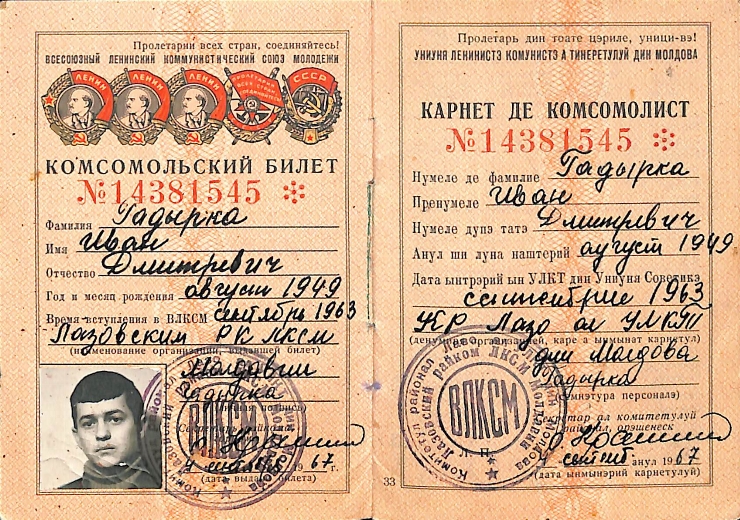 Пролетарии всех стран, соединяйтесь!
ВСЕСОЮЗНЫЙ ЛЕНИНСКИЙ КОММУНИСТИЧЕСКИЙ СОЮЗ МОЛОДЕЖИ
ЛЕНИН ЛЕНИН ЛЕНИН ПРОЛЕТАРИИ ВСЕХ СТРАН СОЕДИНЯЙТЕСЬ СССР
КОМСОМОЛЬСКИЙ БИЛЕТ
№14381545
Фамилия Гадырка
Имя Иван
Отчество Дмитревич
Год и месяц рождения август 1949
Время вступления в ВЛКСМ сентябрь 1963
Лазовским РК ЛКСМ
(наименование организации, выдавшей билет)
Молдавии
Гадырка
(личная подпись)
Секретарь райкома
1967 г.
(дата выдачи билета)
ВЛКСМ
Пролетарь дин тоате цэриле, уници-вэ!
УНИУНЯ ЛЕНИНИСТЭ КОМУНИСТЭ А ТИНЕРЕТУЛУЙ ДИН МОЛДОВА
КАРНЕТ ДЕ КОМСОМОЛИСТ
№14381545
Нумеле де фамилие Гадырка
Пренумеле Иван
Нумеле дупэ татэ Дмитревич
Анул ши луна наштерий аугуст 1949
Дата ынтрэрий ын УЛКТ дин Униуня Советикэ
септембрие 1963
КР Лазо ал УЛКТ
(денумиря организацией, каре а ымынат карнетул)
дин Молдова
Гадырка
(семнэтура персоналэ)
Секретар ал комитетулуй
районал, орэшенеск
Л. П.
сентяб. анул 1967
(дата ымынэрий карнетулуй)
Комитетул районал Лазо ал УЛКТ дин Молдова
Лазовский райком ЛКСМ Молдавии
ВЛКСМ
33